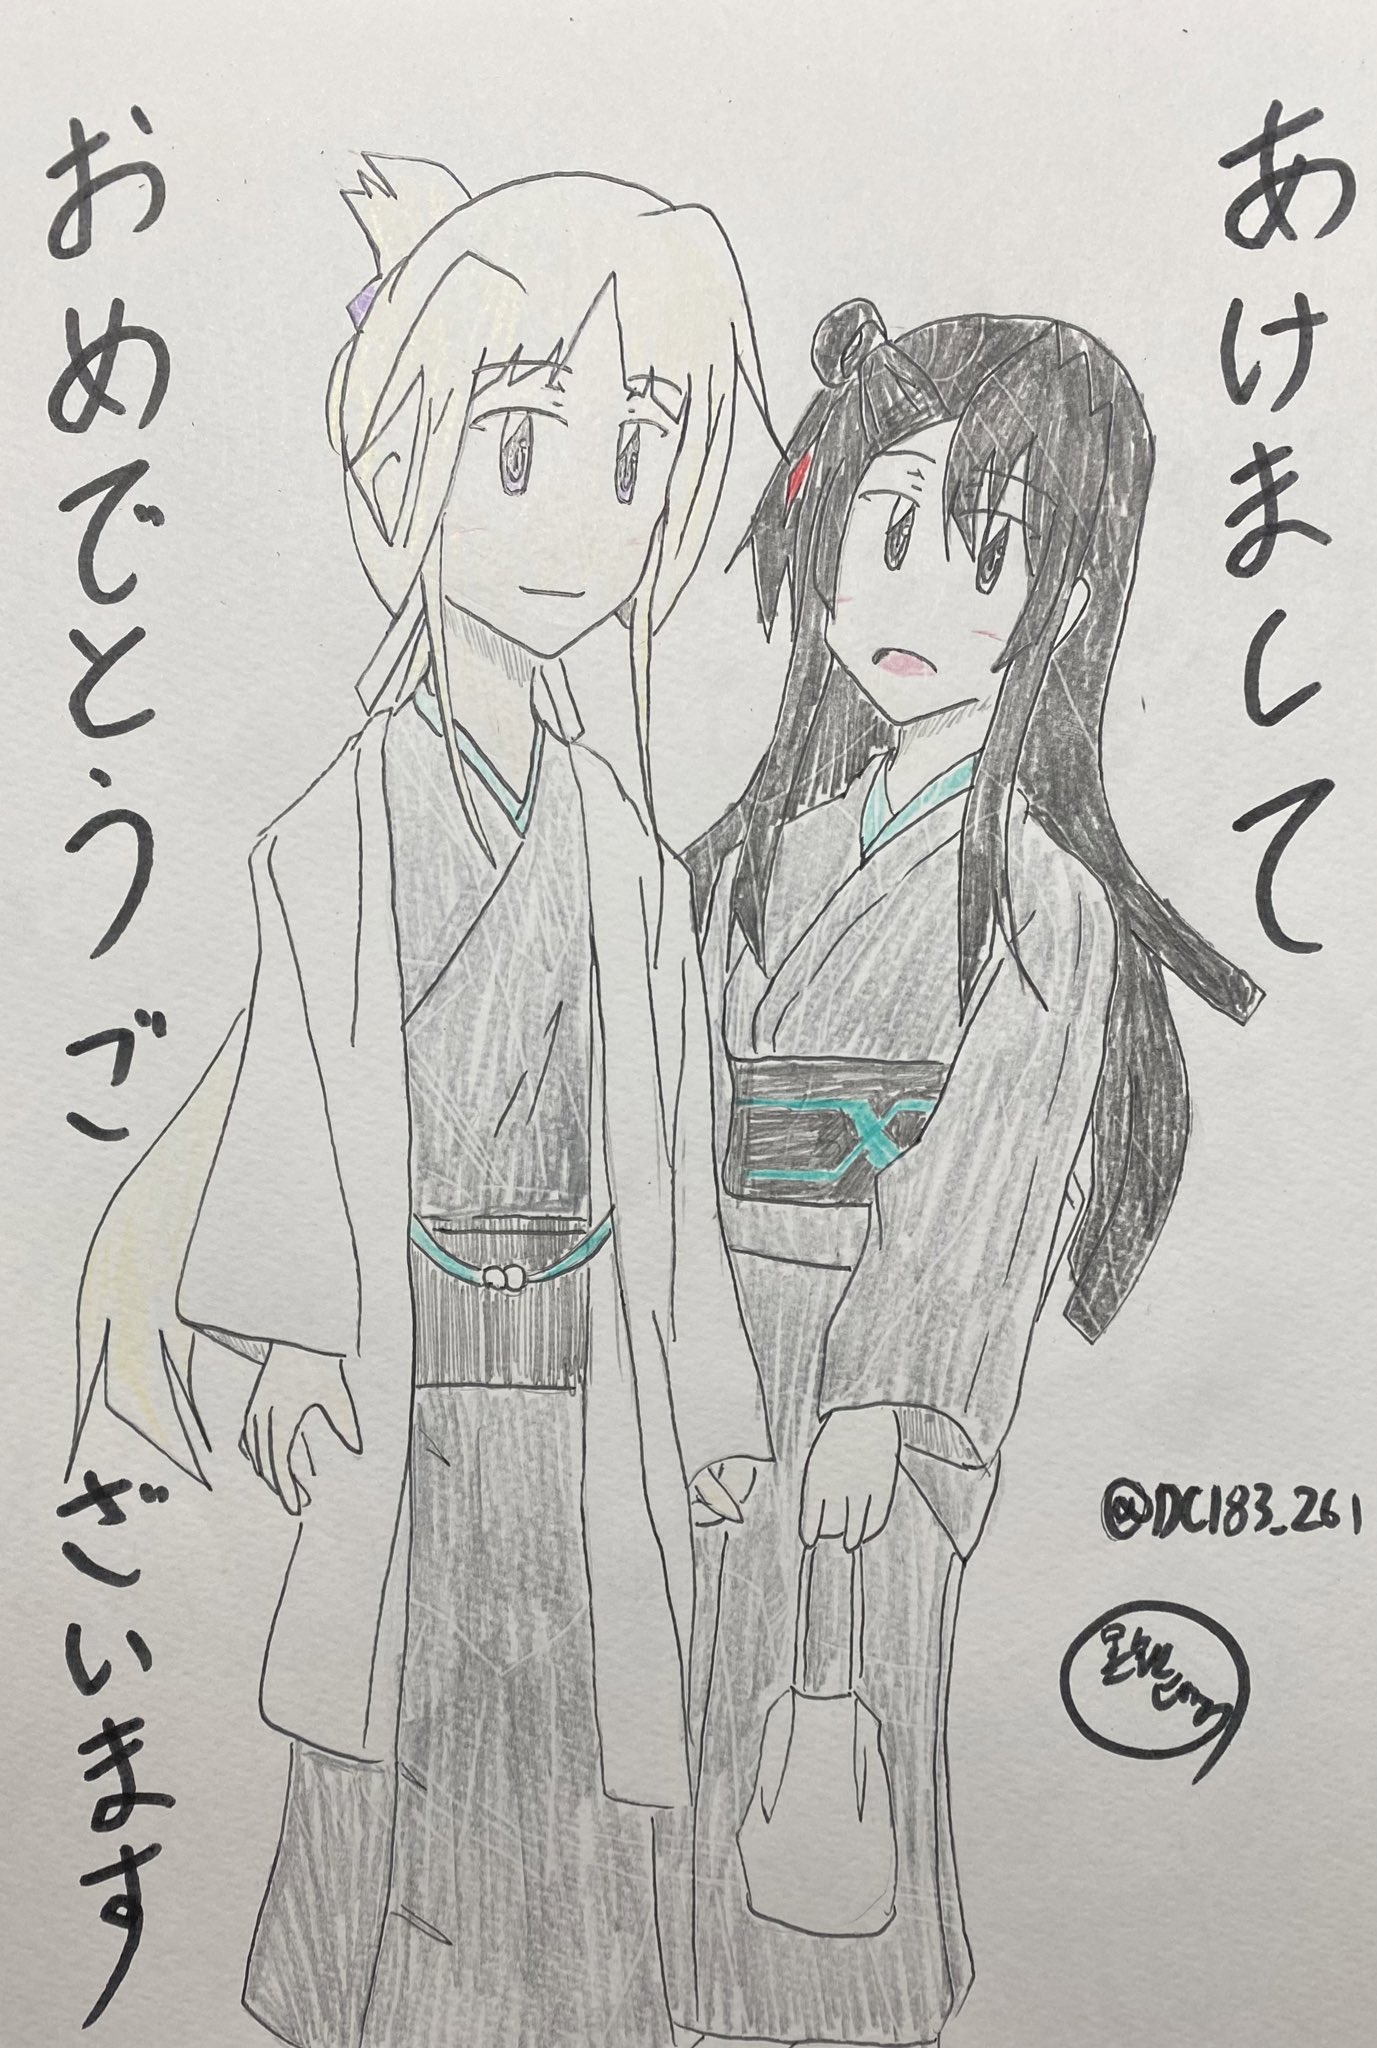 あけまして
おめでとうございます
@DC183_261